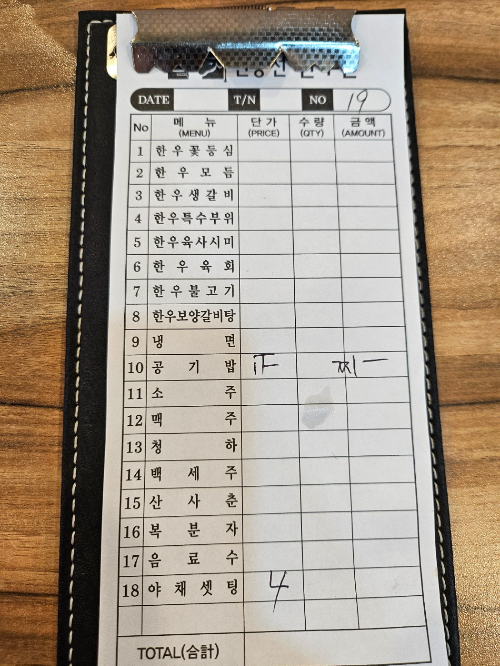 DATE T/N NO 19
No 메 뉴 (MENU) 단 가 (PRICE) 수 량 (QTY) 금 액 (AMOUNT)
1 한우꽃등심
2 한 우 모 듬
3 한우생갈비
4 한우특수부위
5 한우육사시미
6 한 우 육 회
7 한우불고기
8 한우보양갈비탕
9 냉 면
10 공 기 밥 正 찌 一
11 소 주
12 맥 주
13 청 하
14 백 세 주
15 산 사 춘
16 복 분 자
17 음 료 수
18 야 채 셋 팅 4
TOTAL(合計)